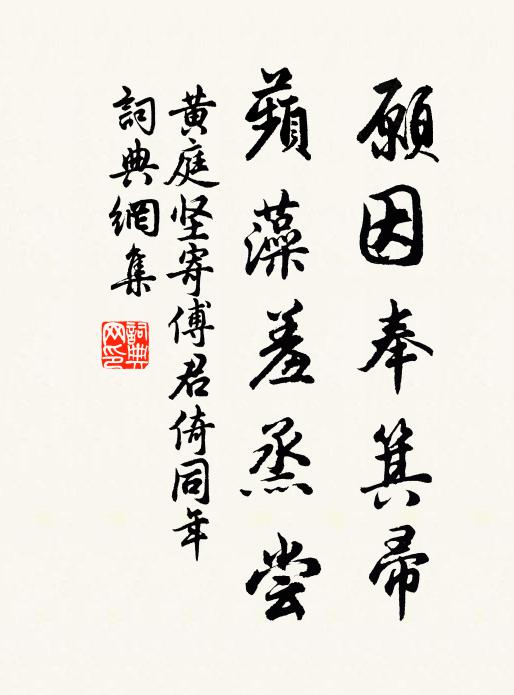 願因奉箕帚
蘋藻羞烝尝
黄庭坚寄傅君倚同年
詞典網集
詞典网印